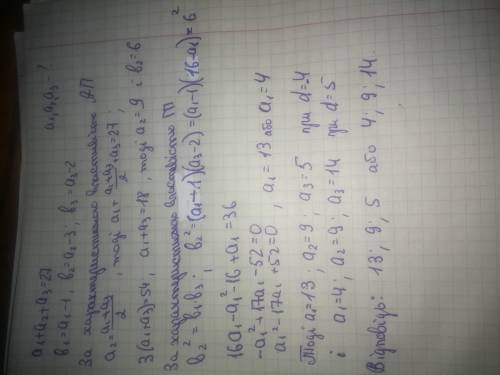 a₁+a₂+a₃=27   a₁,a₂,a₃-?
b₁=a₁-1, b₂=a₂-3; b₃=a₃-2
За характеристичною властивістю АП
a₂=(a₁+a₃)/2, тоді a₁+(a₁+a₃)/2+a₃=27;
3(a₁+a₃)=54, a₁+a₃=18, тоді a₂=9 і b₂=6
За характеристичною властивістю ГП
b₂²=b₁b₃; b₂²=(a₁-1)(a₃-2)=(a₁-1)(16-a₁)=6²
16a₁-a₁²-16+a₁=36
-a₁²+17a₁-52=0
a₁²-17a₁+52=0, a₁=13 або a₁=4
Тоді a₁=13; a₂=9; a₃=5 при d=-4
і a₁=4; a₂=9; a₃=14 при d=5
Відповідь: 13; 9; 5 або 4; 9; 14.